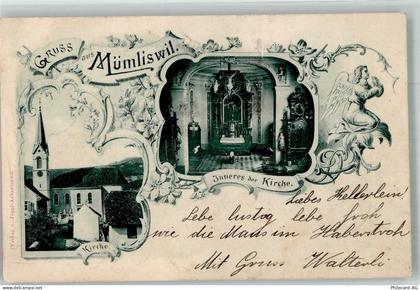 Gruss aus Mümliswil.
Inneres der Kirche.
Kirche
Liebes Hellerlein,
Lebe lustig lebe froh
wie die Maus im Haberstroh
Mit Gruss Walterli
© Philocard AG